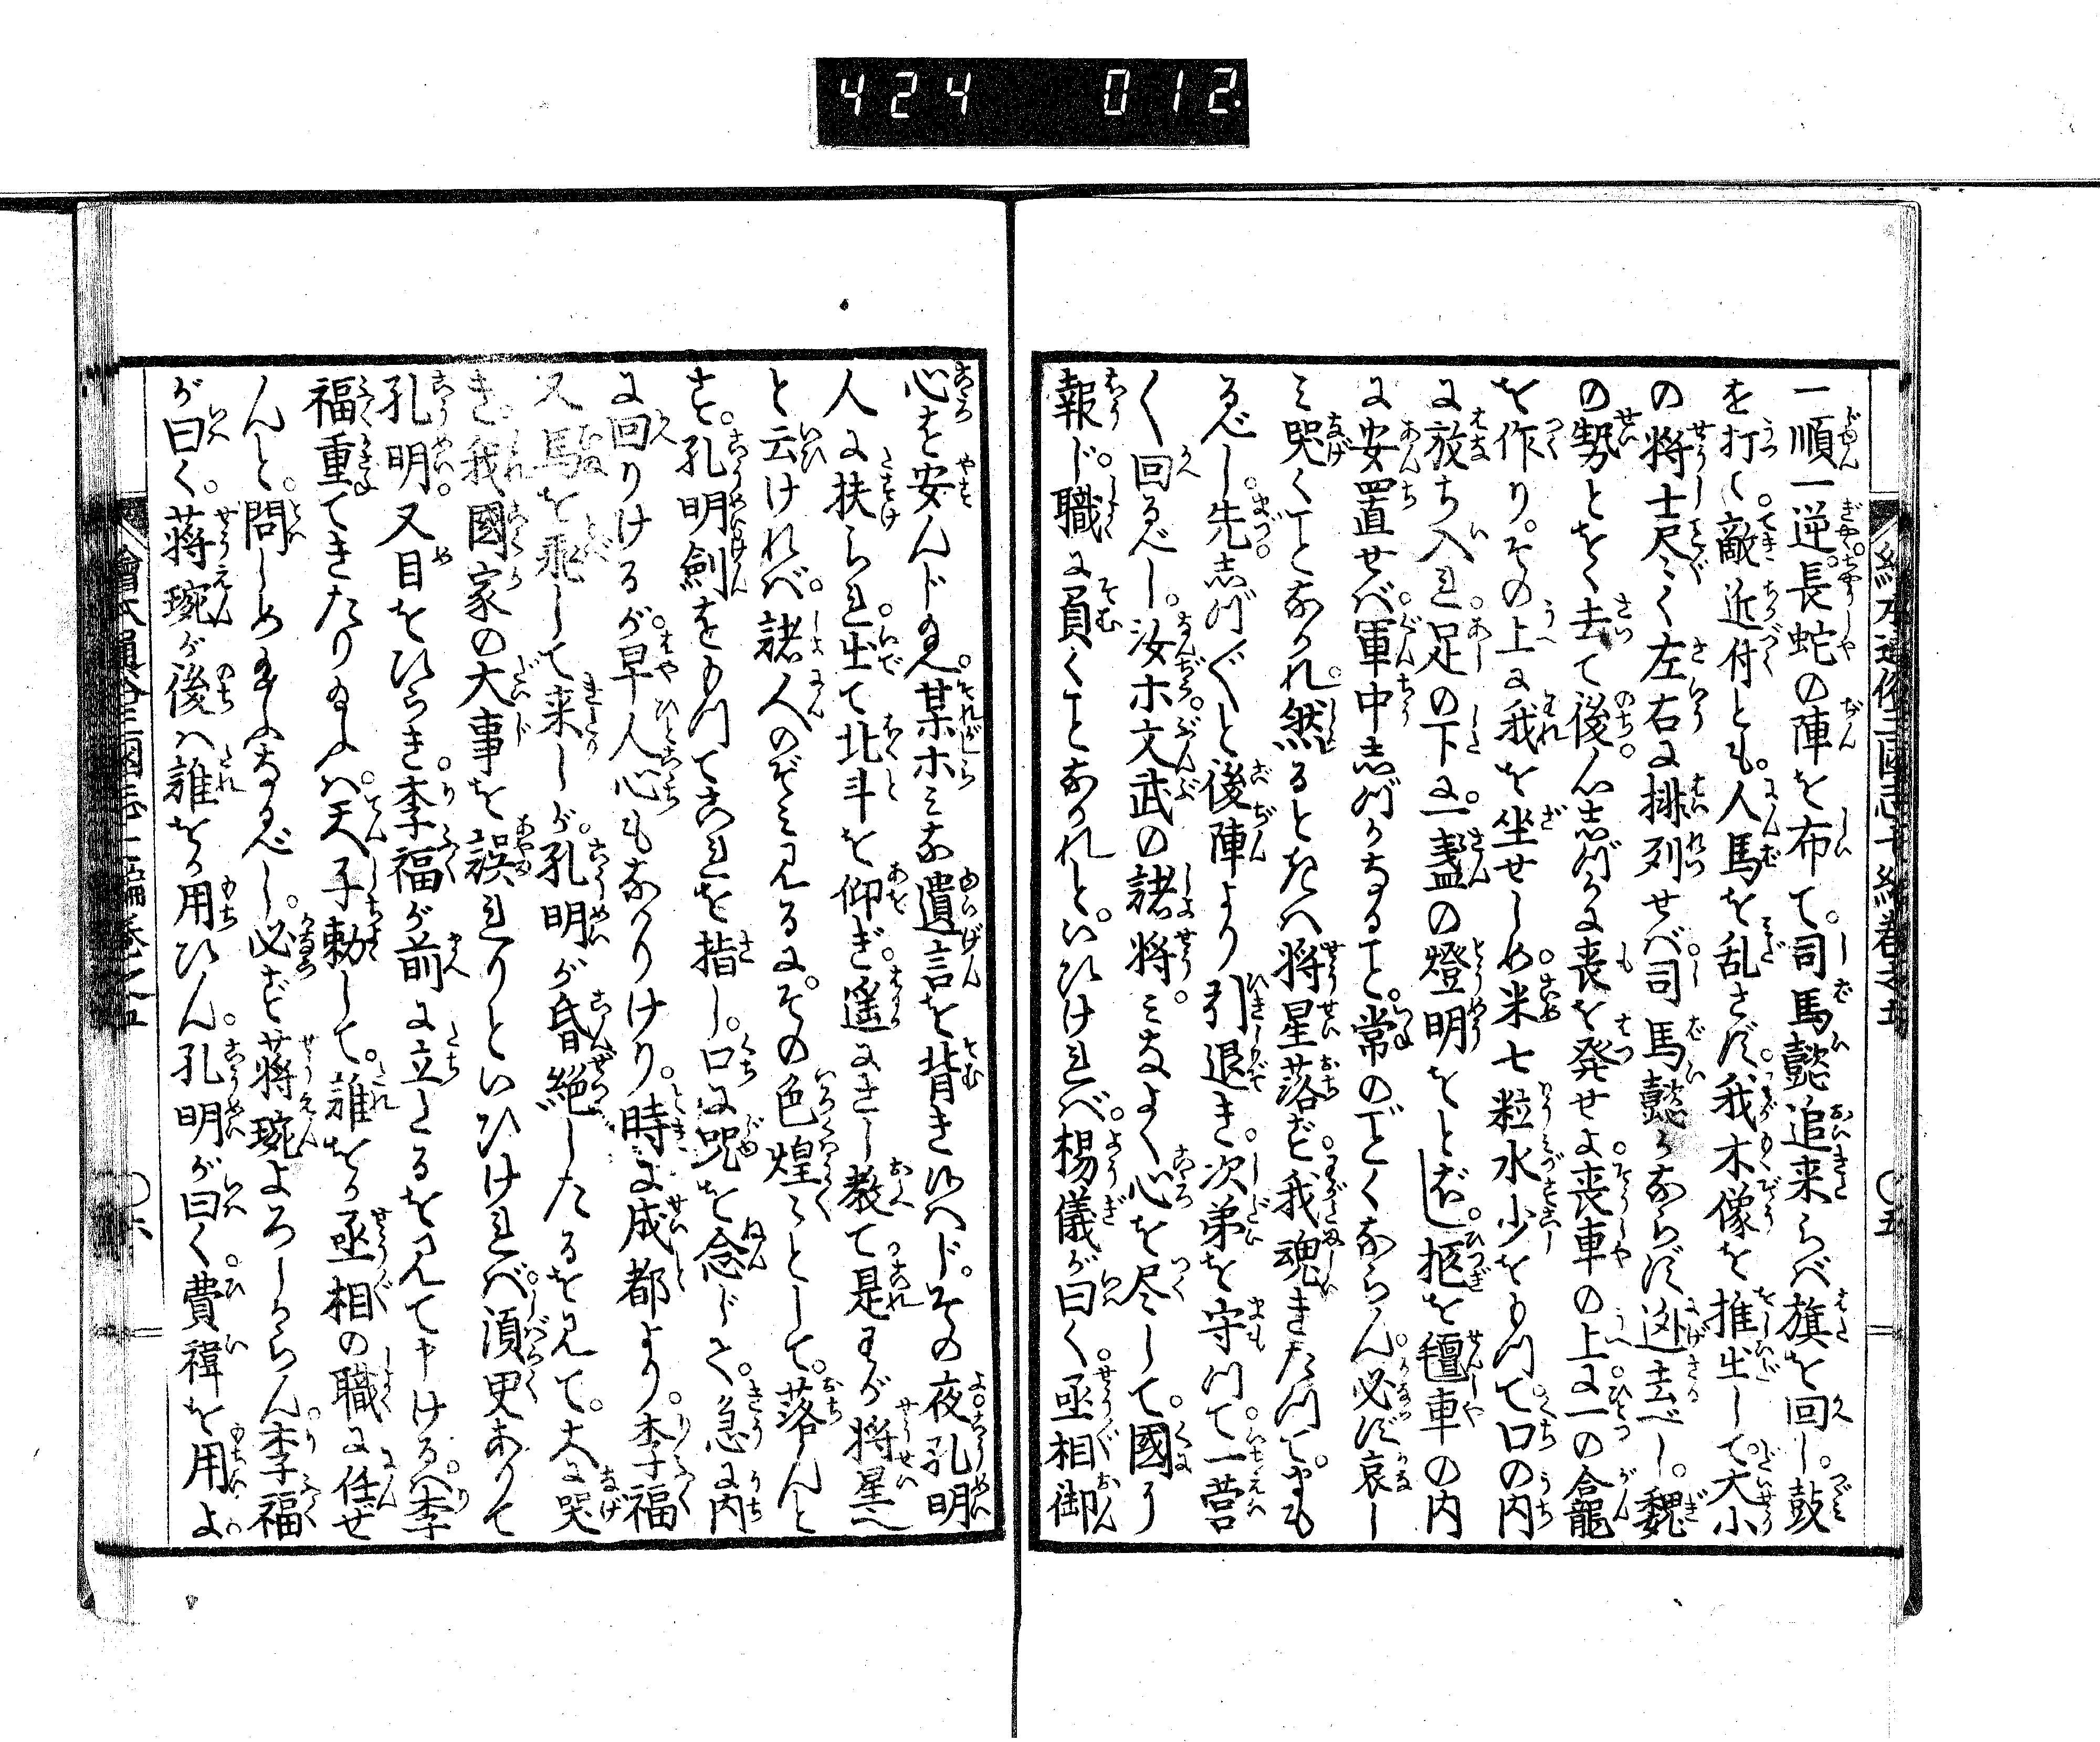 424 012
一順一逆長蛇の陣を布て。司馬懿追来らバ旗を回し。鼓
を打て。敵近付とも。人馬を乱さず。我木像を推出して。大小
の将士尽く左右に排列せバ司馬懿かならず迯去べし。魏
の勢とをく去て後。心志づかに喪を発せよ喪車の上に一の合龕
を作り。その上に我を坐せしめ。米七粒水少をもつて口の内
に放ち入れ。足の下に一盞の燈明をとぼし。柩を氊車の内
に安置せバ。軍中志づかなること。常のごとくならん。必ず哀し
ミ哭くことなかれ。然るときハ将星落ず。我魂きたつて。守も
るべし。先志づ〳〵と後陣より引退き。次第を守つて。一営
く回るべし。汝ホ文武の諸将。ミなよく心を尽して。國に
報じ。職に負くことなかれと。いひけれバ。楊儀が曰く。丞相御
心を安んじ玉へ。某ホミな遺言を背き候ハじ。その夜孔明
人に扶られ。出て北斗を仰ぎ。遥にさし教て是わが将星と
と云けれバ。諸人のぞミ見るに。その色煌〻として。落んと
す。孔明劍をもつてこれを指し。口に呪を念じて。急に内
に回りけるが。早人心もなかりけり。時に成都より。李福
又馬を飛して来しが。孔明が昏絶したるを見て。大に哭
き。我國家の大事を誤れりといひけれバ。須臾ありて
孔明。又目をひらき。李福が前に立たるを見て申けるハ。李
福重てきたり玉ふハ。天子勅して。誰をか丞相の職に任ぜ
んと。問しめ玉ふなるべし。必ず蒋琬よろしからん。李福
が曰く。蒋琬が後ハ誰をか用ひん。孔明が曰く。費禕を用よ。